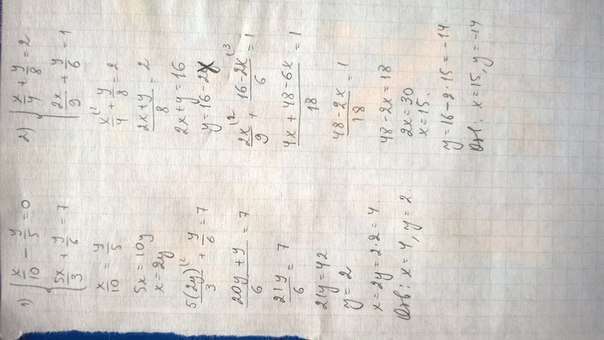 1) { x/10 - y/5 = 0
5x/3 + y/6 = 7
x/10 = y/5
5x = 10y
x = 2y
5(2y)^(2/3 + y/6 = 7
20y + y/6 = 7
21y/6 = 7
21y = 42
y = 2
x = 2y = 2·2 = 4
Отв: x = 4, y = 2
2) { x/4 + y/8 = 2
2x/9 + y/6 = 1
x^(2/4 + y/8 = 2
2x + y/8 = 2
2x + y = 16
y = 16 - 2x
2x^(2/9 + 16 - 2x^(3/6 = 1
4x + 48 - 6x/18 = 1
48 - 2x/18 = 1
48 - 2x = 18
2x = 30
x = 15.
y = 16 - 2·15 = -14
Отв: x = 15, y = -14